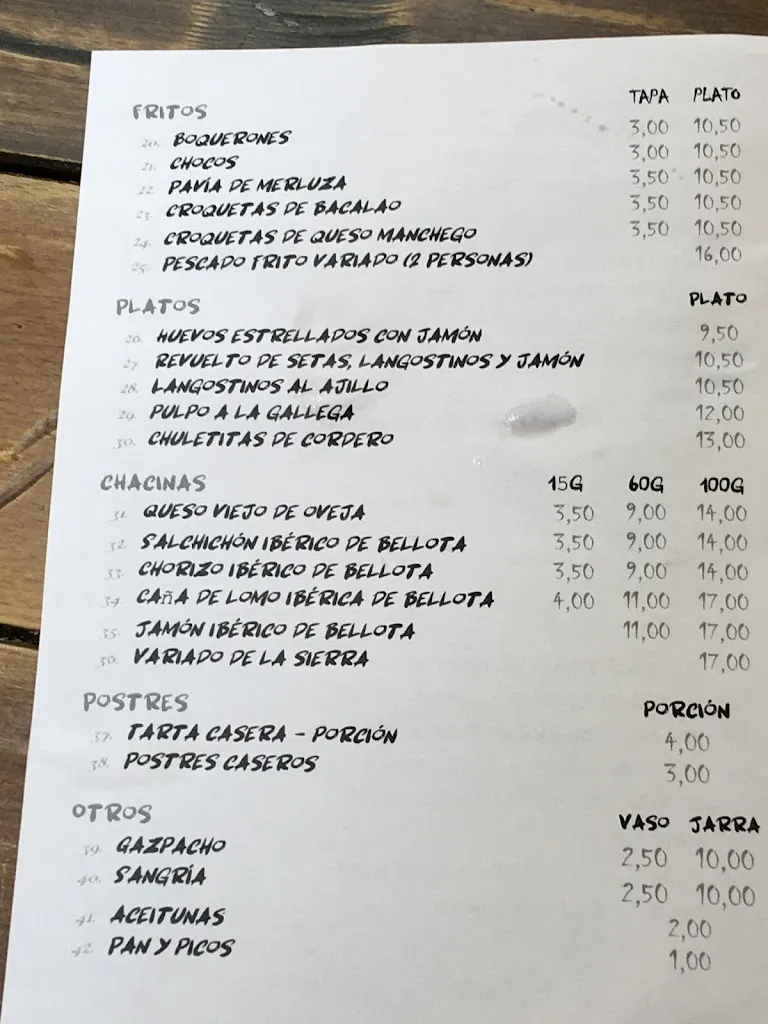 FRITOS TAPA PLATO
20. BOQUERONES 3,00 10,50
21. CHOCOS 3,00 10,50
22. PAVÍA DE MERLUZA 3,50 10,50
23. CROQUETAS DE BACALAO 3,50 10,50
24. CROQUETAS DE QUESO MANCHEGO 3,50 10,50
25. PESCADO FRITO VARIADO (2 PERSONAS) 16,00
PLATOS PLATO
26. HUEVOS ESTRELLADOS CON JAMÓN 9,50
27. REVUELTO DE SETAS, LANGOSTINOS Y JAMÓN 10,50
28. LANGOSTINOS AL AJILLO 10,50
29. PULPO A LA GALLEGA 12,00
30. CHULETITAS DE CORDERO 13,00
CHACINAS 15G 60G 100G
31. QUESO VIEJO DE OVEJA 3,50 9,00 14,00
32. SALCHICHÓN IBÉRICO DE BELLOTA 3,50 9,00 14,00
33. CHORIZO IBÉRICO DE BELLOTA 3,50 9,00 14,00
34. CAñA DE LOMO IBÉRICA DE BELLOTA 4,00 11,00 17,00
35. JAMÓN IBÉRICO DE BELLOTA 11,00 17,00
36. VARIADO DE LA SIERRA 17,00
POSTRES PORCIÓN
37. TARTA CASERA - PORCIÓN 4,00
38. POSTRES CASEROS 3,00
OTROS VASO JARRA
39. GAZPACHO 2,50 10,00
40. SANGRÍA 2,50 10,00
41. ACEITUNAS 2,00
42. PAN Y PICOS 1,00